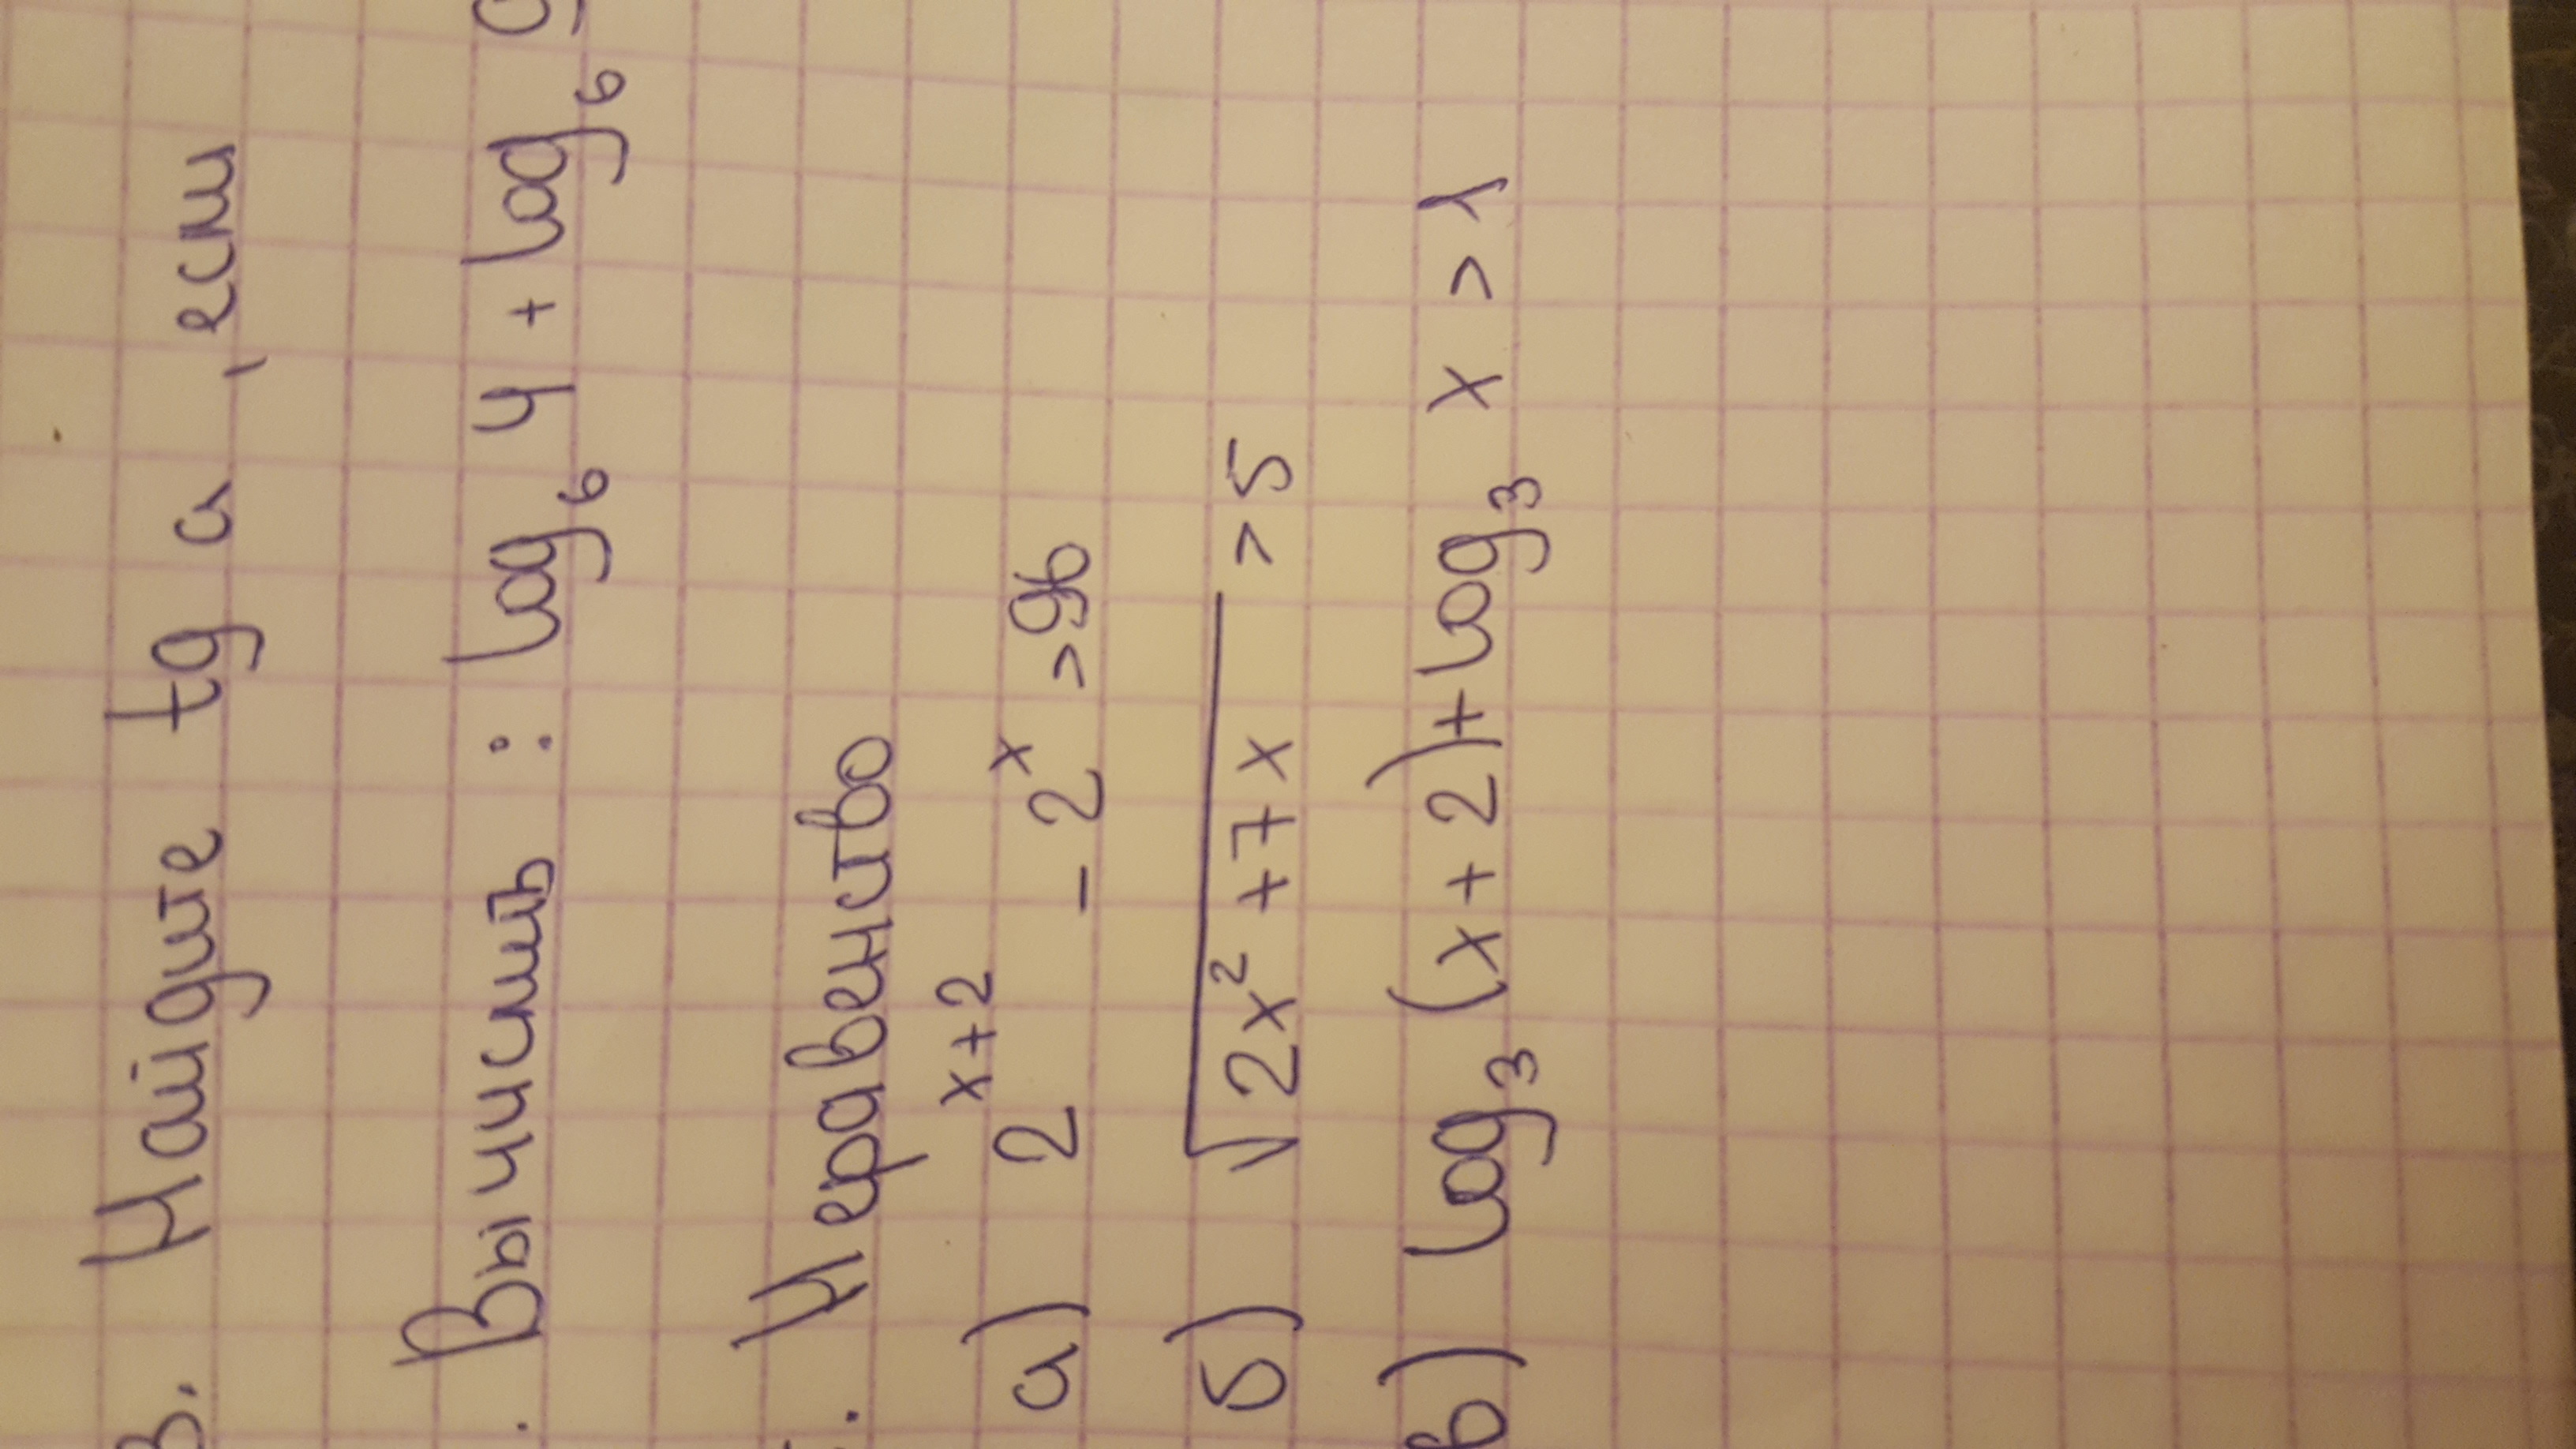 3. Найдите tg a, если
. Вычислить : log₆ 4 + log₆ 9
. Неравенство
а) 2ˣ⁺² - 2ˣ > 96
б) √(2x² + 7x) > 5
в) log₃ (x + 2) + log₃ x > 1